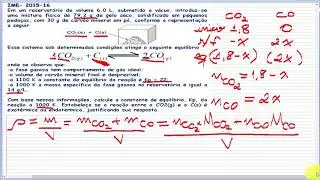 IME- 2015-16
Em um reservatório de volume 6.0 L, submetido a vácuo, introduz-se
uma mistura física de 79.2 g de gelo seco, solidificado em pequenos
pedaços, com 30 g de carvão mineral em pó, conforme a representação
a seguir
CO2 CO
início 1,8 0
r/f -x 2x
(1,8-x) (2x)
Esse sistema sob determinadas condições atinge o seguinte equilíbrio
1CO2(g) + C(s) ⇌ 2CO(g)
onde se observa que:
- a fase gasosa tem comportamento de gás ideal;
- o volume de carvão mineral final é desprezível;
- a 1100 K a constante de equilíbrio da reação é Kp = 22;
- a 1000 K a massa específica da fase gasosa no reservatório é igual a
14 g/L
nCO2 = 1,8-x
nCO = 2x
Com base nessas informações, calcule a constante de equilíbrio, Kp, da
reação a 1000 K. Estabeleça se a reação entre o CO2(g) e o C(s) é
exotérmica ou endotérmica, justificando sua resposta.
ρ = m/V = mCO2 + mCO / V = nCO2 MCO2 + nCO MCO / V